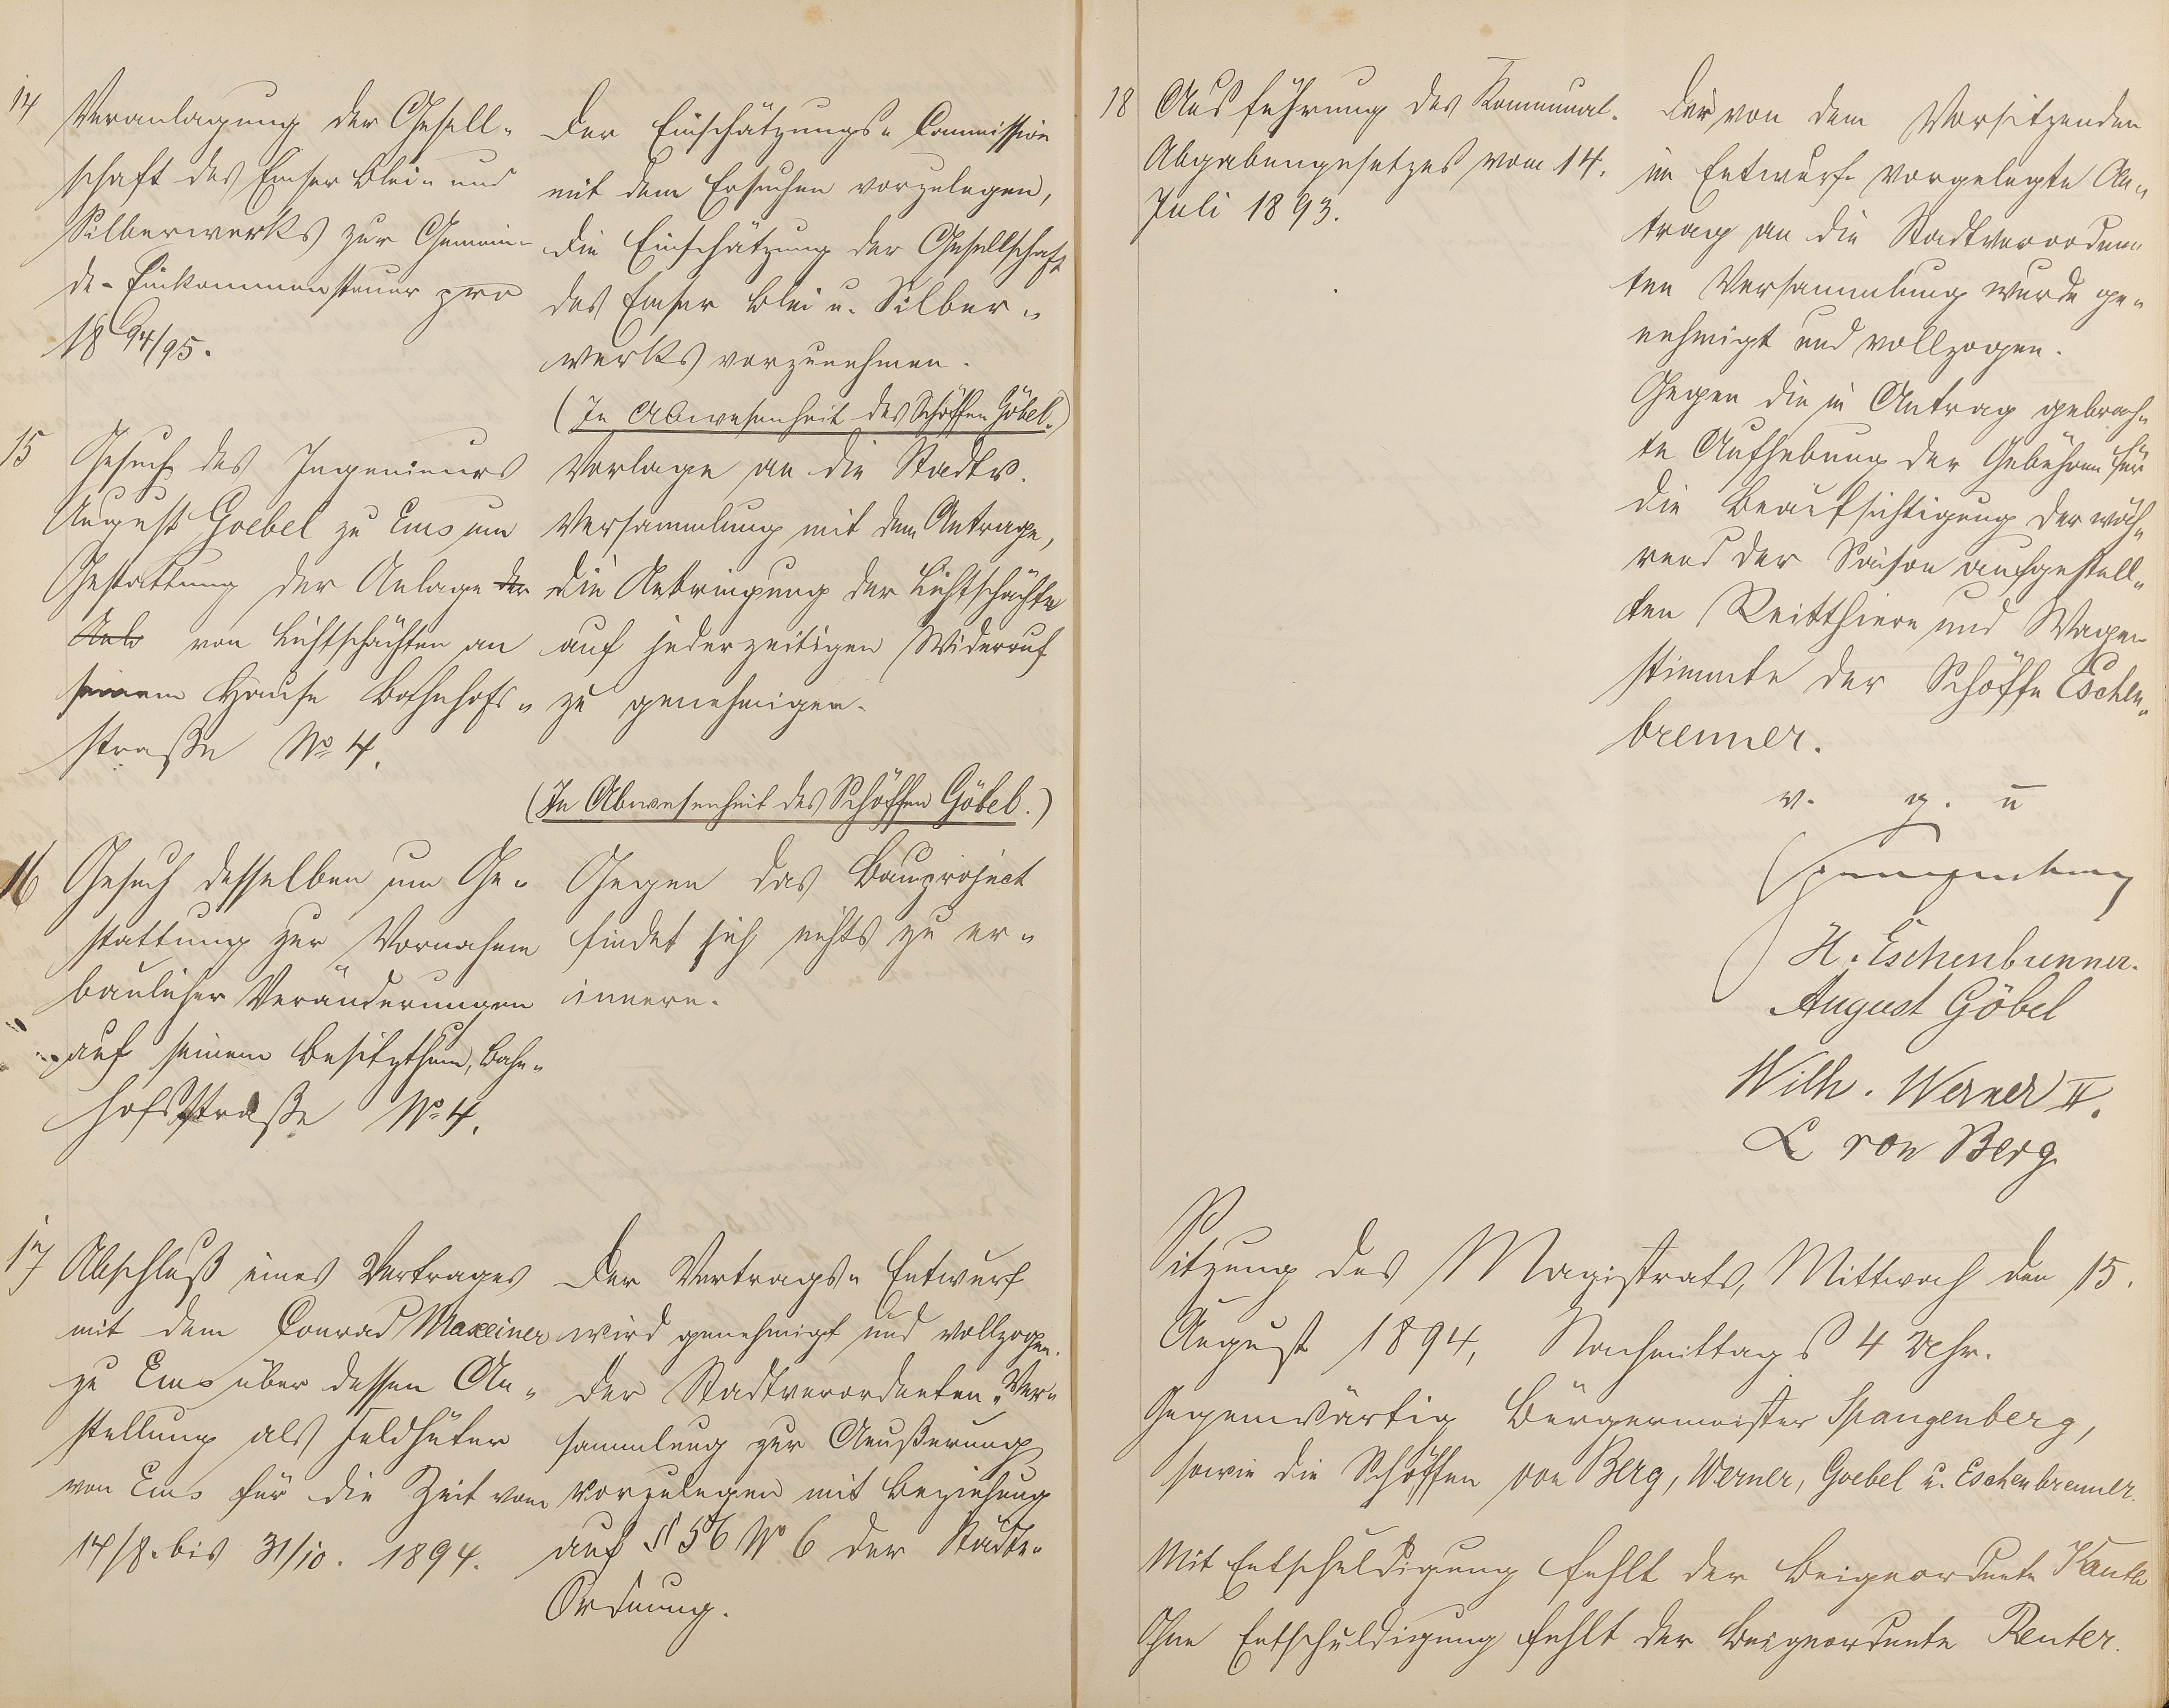 14
Veranlagung der Gesell-
schaft des Emser Blei- und
Silberwerks zur Gemein-
de-Einkommensteuer pro
1894/95.
Der Einschätzungs-Commission
mit dem Ersuchen vorzulegen,
die Einschätzung der Gesellschaft
des Emser Blei u. Silber-
werks vorzunehmen.
(In Abwesenheit des Schöffen Göbel.)
15
Gesuch des Ingenieurs
August Goebel zu Ems um
Gestattung der Anlage der
Anb von Lichtschächten an
seinem Hause Bahnhofs-
straße No 4.
Vorlage an die Stadtv.
Versammlung mit dem Antrage,
die Anbringung der Lichtschächte
auf jederzeitigen Widerruf
zu genehmigen.
(In Abwesenheit des Schöffen Göbel.)
16
Gesuch desselben um Ge-
stattung zur Vornahme
baulicher Veränderungen
auf seinem Besitzthum, Bahn-
hofsstraße No 4.
Gegen das Bauproject
findet sich nichts zu er-
innern.
17
Abschluß eines Vertrages
mit dem Conrad Maxeiner
zu Ems über dessen An-
stellung als Feldhüter
von Ems für die Zeit vom
14/8. bis 31/10. 1894.
Der Vertrags-Entwurf
wird genehmigt und vollzogen.
Der Stadtverordneten-Ver-
sammlung zur Aeußerung
vorzulegen mit Beziehung
auf § 56 No 6 der Städte-
Ordnung.
18
Ausführung des Kommunal-
Abgabengesetzes vom 14.
Juli 1893.
Der von dem Vorsitzenden
im Entwurfe vorgelegte An-
trag an die Stadtverordne-
ten Versammlung wurde ge-
nehmigt und vollzogen.
Gegen die in Antrag gebrach-
te Aufhebung der Gebühren für
die Beaufsichtigung der wäh-
rend der Saison aufgestell-
ten Reitthiere und Wagen
stimmte der Schöffe Eschen-
brenner.
v. g. u
Spangenberg
H. Eschenbrenner.
August Göbel
Wilh. Werner II.
L von Berg
Sitzung des Magistrats, Mittwoch den 15.
August 1894, Nachmittags 4 Uhr.
Gegenwärtig Bürgermeister Spangenberg,
sowie die Schöffen von Berg, Werner, Goebel u. Eschenbrenner.
Mit Entschuldigung fehlt der Beigeordnete
Ohne Entschuldigung fehlt der Beigeordnete Reuter.